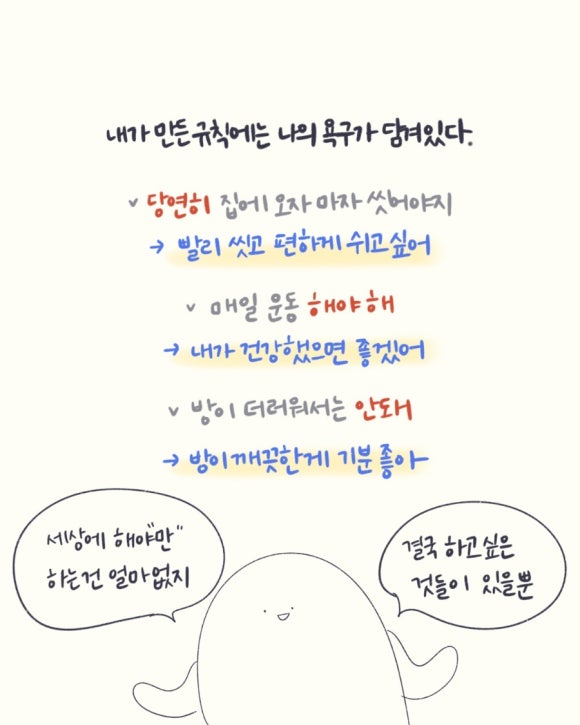 내가 만든 규칙에는 나의 욕구가 담겨있다.
✓ 당연히 집에 오자 마자 씻어야지
→ 빨리 씻고 편하게 쉬고싶어
✓ 매일 운동 해야해
→ 내가 건강했으면 좋겠어
✓ 방이 더러워서는 안돼
→ 방이 깨끗한게 기분 좋아
세상에 해야"만"
하는건 얼마없지
결국 하고싶은
것들이 있을뿐